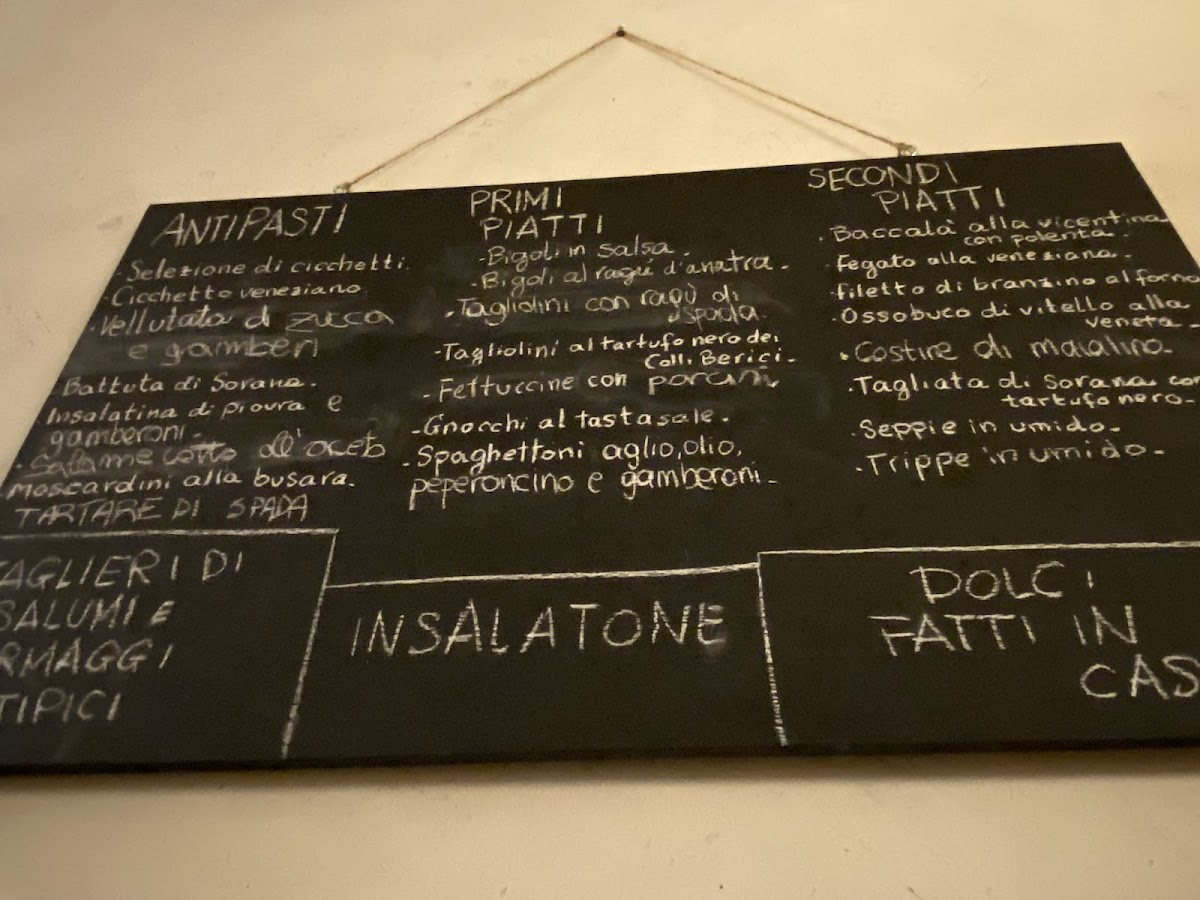 ANTIPASTI
- Selezione di cicchetti.
- Cicchetto veneziano
- Vellutata di zucca
e gamberi
- Battuta di Sorana.
Insalatina di piovra e
gamberoni.
- Salame cotto all'aceto
moscardini alla busara.
TARTARE DI SPADA
PRIMI
PIATTI
- Bigoli in salsa.
- Bigoli al ragù d'anatra.
- Tagliolini con ragù di
spada.
- Tagliolini al tartufo nero dei
Colli Berici.
- Fettuccine con porcini
- Gnocchi al tastasale.
- Spaghettoni aglio, olio,
peperoncino e gamberoni.
SECONDI
PIATTI
. Baccalà alla vicentina
con polenta.
. Fegato alla veneziana.
. filetto di branzino al forno
. Ossobuco di vitello alla
veneta.
. Costine di maialino.
. Tagliata di Sorana con
tartufo nero.
. Seppie in umido.
. Trippe in umido.
TAGLIERI DI
SALUMI E
RMAGGI
TIPICI
INSALATONE
DOLCI
FATTI IN
CAS